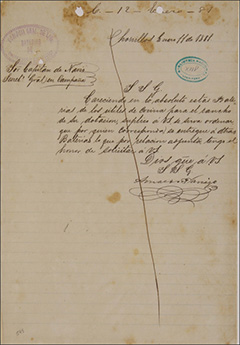 6-12 Enero-81
Chorrillos Enero 11 de 1881
Sor. Capitan de Navio
Secrt. Gral. en Campaña
S. S. G.
Careciendo en lo absoluto estas Bate
rias de los útiles de cocina para el rancho
de su dotacion, suplico á VS se sirva ordenar
que por quien corresponda se entregue á dhas
Baterias lo que por relacion adjunta tengo el
honor de solicitar á VS
Dios gue. á VS
S. S. G.